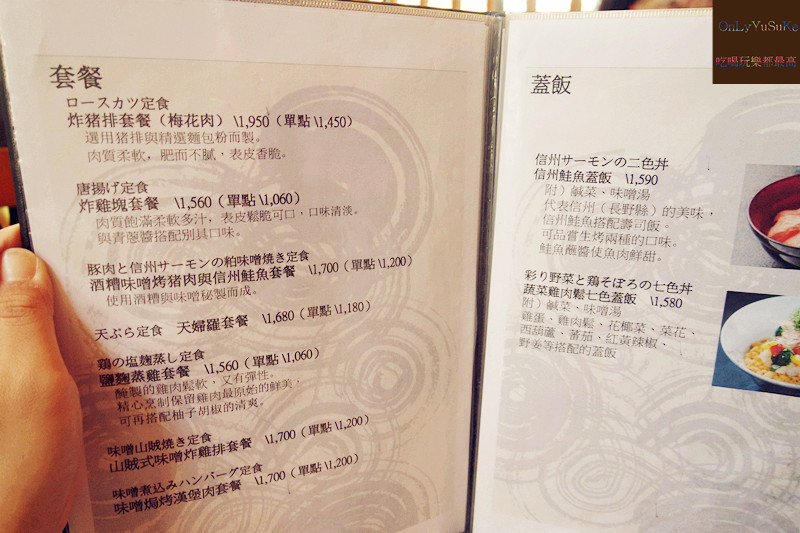 OnLyYuSuKe
吃喝玩樂都最高
套餐
ロースカツ定食
炸猪排套餐（梅花肉） \1,950（單點 \1,450）
選用猪排與精選麵包粉而製。
肉質柔軟，肥而不膩，表皮香脆。
唐揚げ定食
炸雞塊套餐 \1,560（單點 \1,060）
肉質飽滿柔軟多汁，表皮鬆脆可口，口味清淡。
與青蔥醬搭配別具口味。
豚肉と信州サーモンの粕味噌焼き定食
酒糟味噌烤猪肉與信州鮭魚套餐 \1,700（單點 \1,200）
使用酒糟與味噌秘製而成。
天ぷら定食 天婦羅套餐 \1,680（單點 \1,180）
鶏の塩麹蒸し定食
鹽麴蒸雞套餐 \1,560（單點 \1,060）
醃製的雞肉鬆軟，又有彈性。
精心烹制保留雞肉最原始的鮮美，
可再搭配柚子胡椒的清爽。
味噌山賊焼き定食
山賊式味噌炸雞排套餐 \1,700（單點 \1,200）
味噌煮込みハンバーグ定食
味噌焗烤漢堡肉套餐 \1,700（單點 \1,200）
蓋飯
信州サーモンの二色丼
信州鮭魚蓋飯 \1,590
附）鹹菜、味噌湯
代表信州（長野縣）的美味，
信州鮭魚搭配壽司飯。
可品嘗生烤兩種的口味。
鮭魚蘸醬使魚肉鮮甜。
彩り野菜と鶏そぼろの七色丼
蔬菜雞肉鬆七色蓋飯 \1,580
附）鹹菜、味噌湯
雞蛋、雞肉鬆、花椰菜、菜花、
西葫蘆、蕃茄、紅黃辣椒、
野姜等搭配的蓋飯